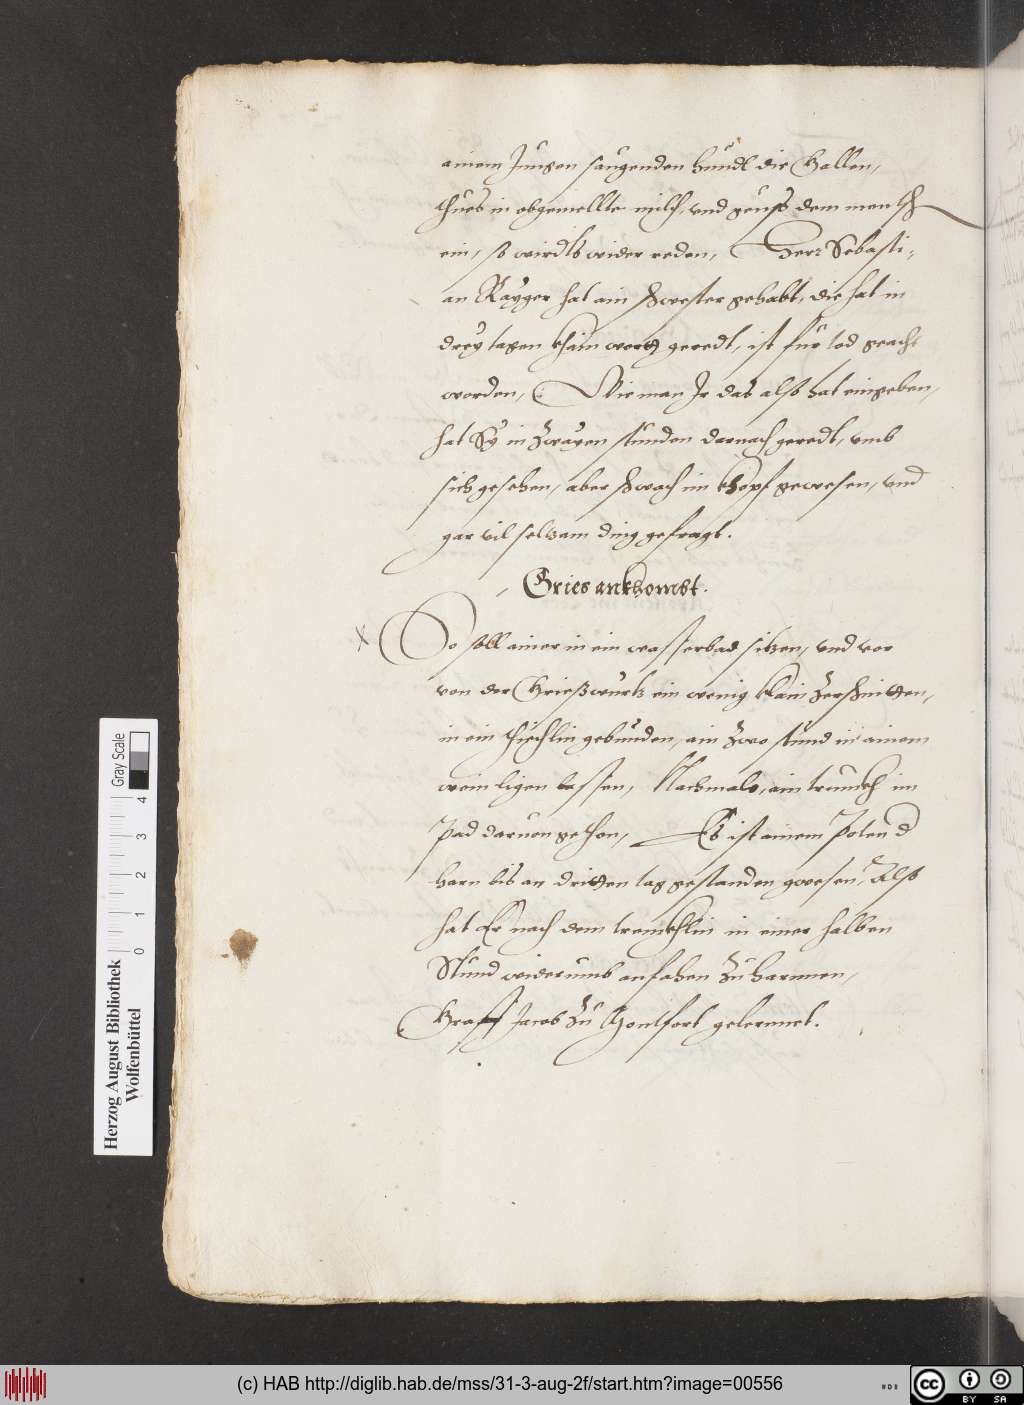 ainem Jungen saugenden hundl die Gallen,
thues in obgemellte milch, und geuss dem mentsch
ein, so wirdts wider reden, Herr Sebasti-
an Rayger hat ain schwester gehabt, die hat in
drey tagen khain wortt geredt, ist für tod geacht
worden, Wie man Ir das also hat eingeben,
hat Sy in zwayen stunden darnach geredt, umb
sich gesehen, aber schwach im khopf gewesen, und
gar vil seltzam ding gefragt.
Gries ankhombt.
x So soll ainer in ein wasserbad sitzen, und vor
von der Grießwurtz ein wenig klain zerschnitten,
in ein thüchlin gebunden, ain zwo stund in ainem
wein ligen lassen, Nachmals, ain trunckh im
Pad daruon gethon, Es ist ainem Poten d
harn bis an dritten tag gestanden gwesen, Also
hat Er nach dem trinckhlin in einer halben
Stund widerumb anfahen zu harnnen,
Graff Jacob zu Montfort gelernnet.
Herzog August Bibliothek
Wolfenbüttel
Gray Scale
0 1 2 3 4
(c) HAB http://diglib.hab.de/mss/31-3-aug-2f/start.htm?image=00556
cc BY SA